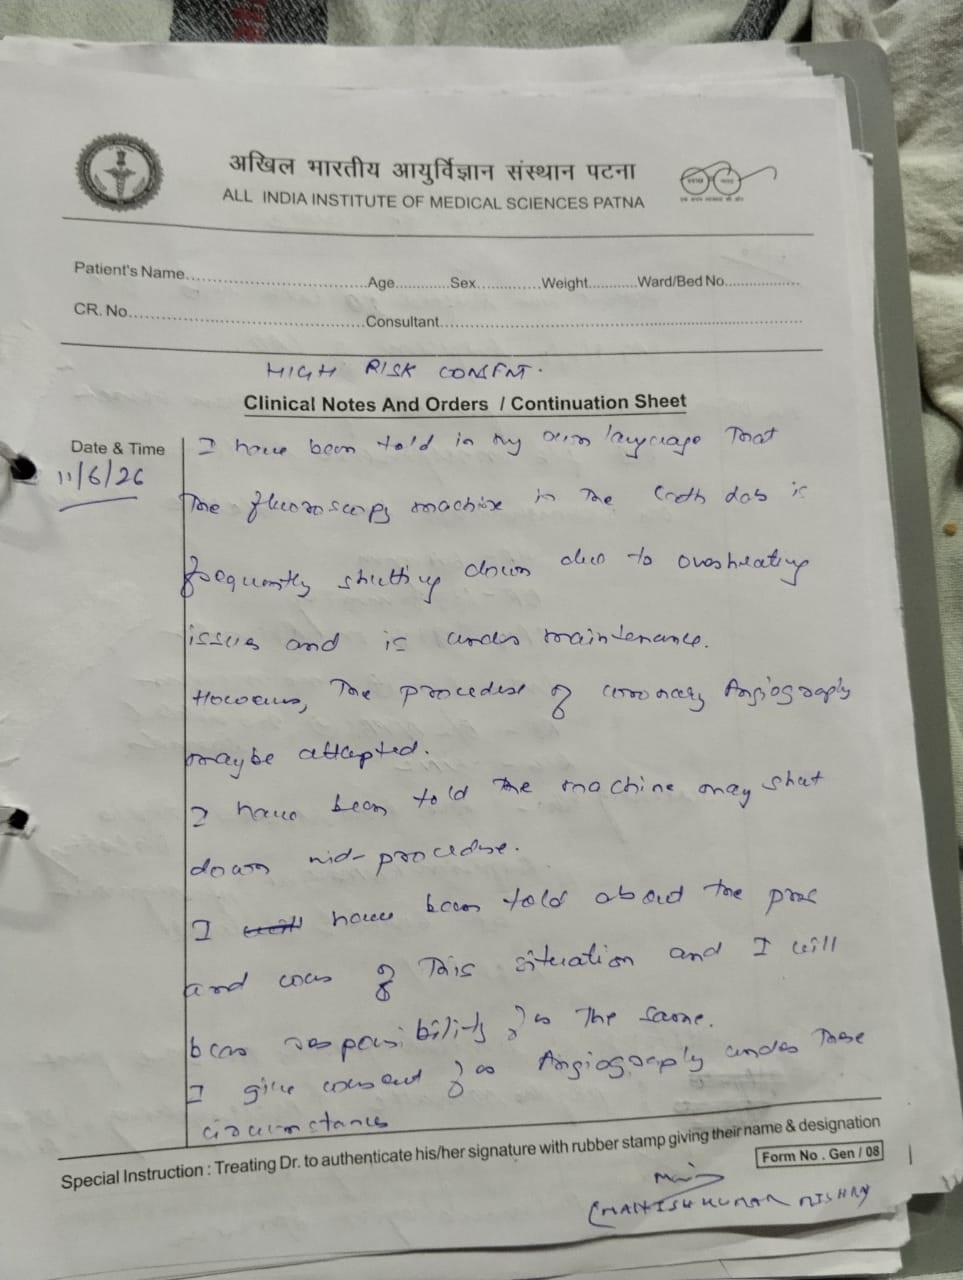 अखिल भारतीय आयुर्विज्ञान संस्थान पटना
ALL INDIA INSTITUTE OF MEDICAL SCIENCES PATNA
Patient's Name.......................................Age............Sex..............Weight...........Ward/Bed No.................
CR. No..................................................Consultant..............................................................................
HIGH RISK CONSENT.
Clinical Notes And Orders / Continuation Sheet
Date & Time
11/6/26
I have been told in my own language that
the fluoroscopy machine in the Cath Lab is
frequently shutting down due to overheating
issues and is under maintenance.
However, the procedure of coronary Angiography
maybe attempted.
I have been told the machine may shut
down mid-procedure.
I have been told about the pros
and cons of this situation and I will
bear responsibility for the same.
I give consent for Angiography under these
circumstances
Special Instruction : Treating Dr. to authenticate his/her signature with rubber stamp giving their name & designation
Form No . Gen / 08
(MANISH KUMAR MISHRA